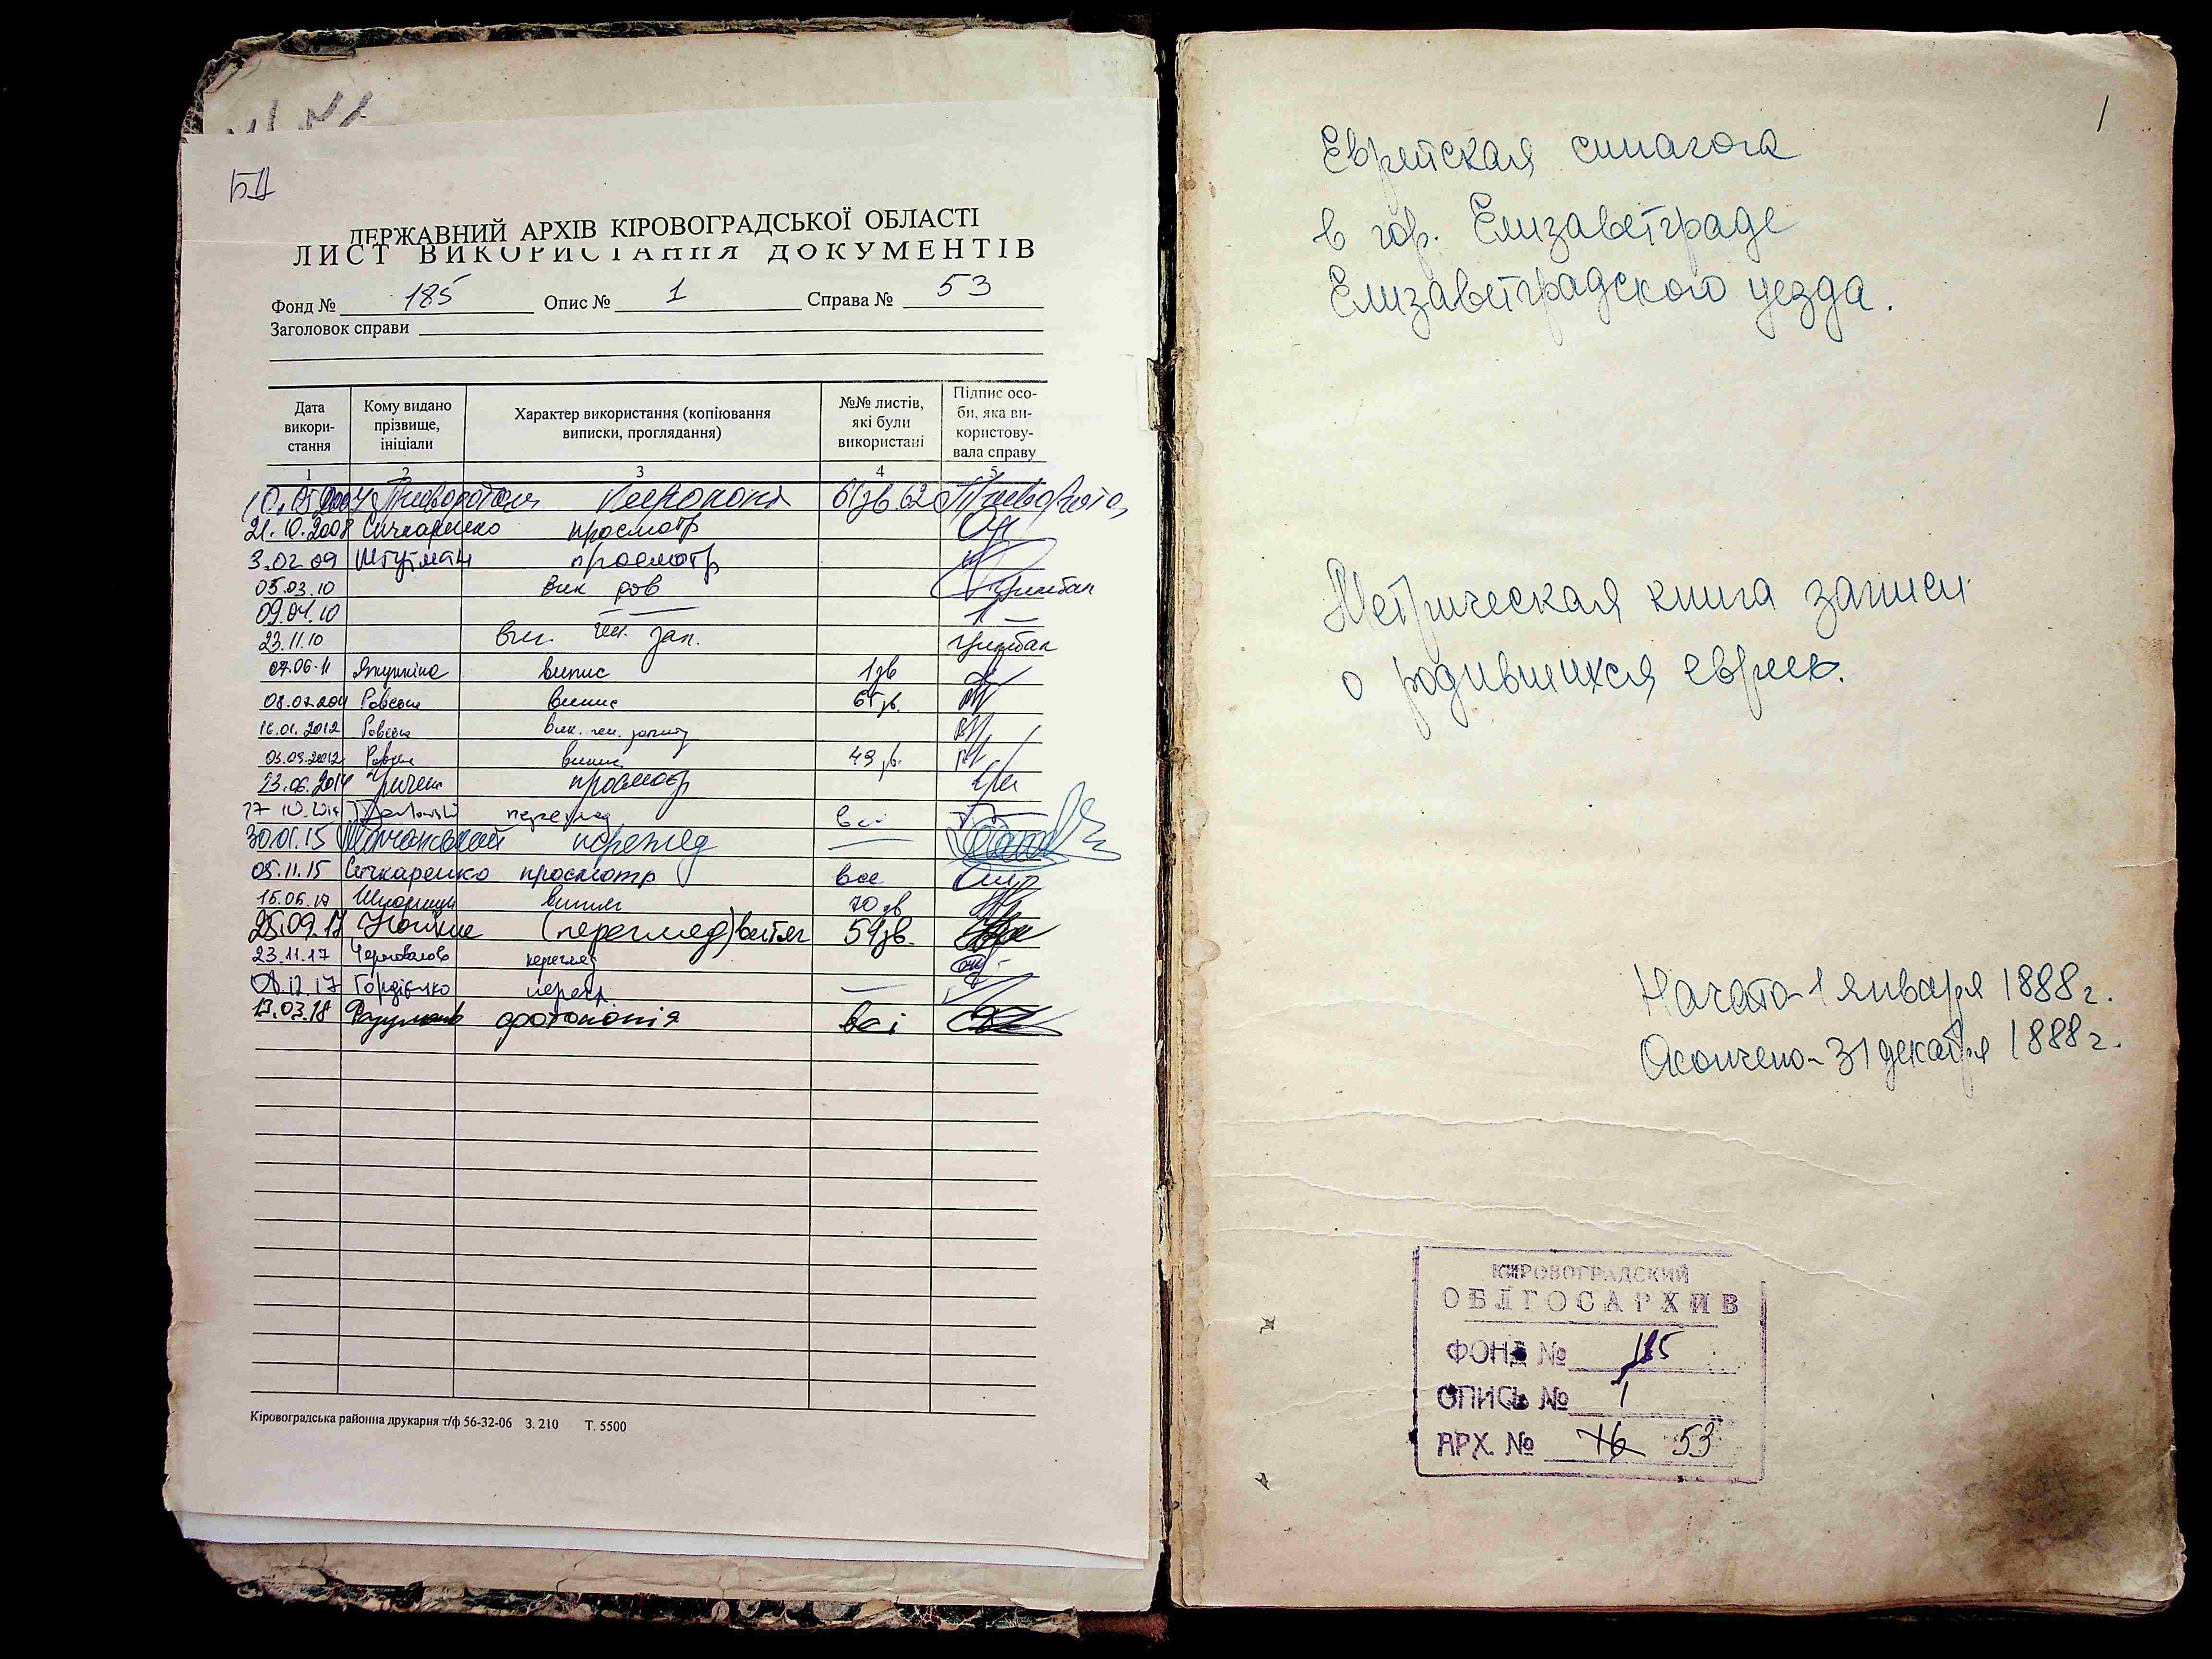 БД
ДЕРЖАВНИЙ АРХІВ КІРОВОГРАДСЬКОЇ ОБЛАСТІ
ЛИСТ ВИКОРИСТАННЯ ДОКУМЕНТІВ
Фонд № 185 Опис № 1 Справа № 53
Заголовок справи
Дата викори-стання
Кому видано прізвище, ініціали
Характер використання (копіювання виписки, проглядання)
№№ листів, які були використані
Підпис осо-би, яка ви-користову-вала справу
1 2 3 4 5
ксерокопія 61зв 62
21.10.2008 Сичкаренко просмотр
3.02.09 Штутман просмотр
05.03.10 Цимбал
09.04.10
23.11.10 вик. ген. зап. Цимбал
07.06.11 випис 1зв
випис 65зв.
16.01.2012 вик. ген. запиту
03.09.2012 випис 49зв.
23.06.2014 просмотр
перегляд всі
30.01.15 перегляд
05.11.15 Сичкаренко просмотр все
15.06.17 витяг 70зв
25.09.17 (перегляд) витяг 54зв.
23.11.17 перегляд
12.17 Гордієнко перегл.
19.03.18 фотокопія всі
Кіровоградська районна друкарня т/ф 56-32-06 З. 210 Т. 5500
1
Еврейская синагога
в гор. Елизаветграде
Елизаветградского уезда.
Метрическая книга записи
о родившихся евреев.
Начато-1 января 1888 г.
Окончено-31 декабря 1888 г.
КИРОВОГРАДСКИЙ
ОБЛГОСАРХИВ
ФОНД № 185
ОПИСЬ № 1
АРХ. № 16 53